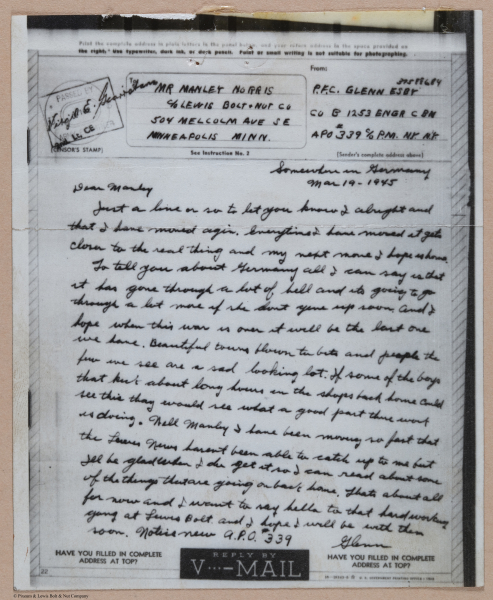 Print the complete address in plain letters in the panel below, and your return address in the space provided on
the right. Use typewriter, dark ink, or dark pencil. Faint or small writing is not suitable for photographing.
From:
To:
PASSED BY
(CENSOR'S STAMP)
MR MANLEY NORRIS
C/O LEWIS BOLT & NUT CO
504 MELCOLM AVE S E
MINNEAPOLIS MINN.
P.F.C. GLENN ESBY
CO B 1253 ENGR C BN
APO #339 % P.M. N.Y. N.Y.
See Instruction No. 2
(Sender's complete address above)
Somewhere in Germany
Mar 19 - 1945
Dear Manley
Just a line or so to let you know I alright and
that I have moved agin. Everytime I have moved it gets
closer to the real thing and my next move I hope is home.
To tell you about Germany all I can say is that
it has gone through a lot of hell and its going to go
through a lot more if she dont give up soon and I
hope when this war is over it will be the last one
we have. Beautiful towns blown to bits and people the
few we see are a sad looking lot. If some of the boys
that kick about long hours in the shops back home could
see this they would see what a good part there work
is doing. Well Manley I have been moving so fast that
the Lewis News havent been able to catch up to me but
I'll be glad when I do get it so I can read about some
of the things that are going on back home. Thats about all
for now and I want to say hello to that hard working
gang at Lewis Bolt and I hope I will be with them
soon. Notice new A.P.O. #339
Glenn
HAVE YOU FILLED IN COMPLETE
ADDRESS AT TOP?
REPLY BY
V···—MAIL
HAVE YOU FILLED IN COMPLETE
ADDRESS AT TOP?
© Pioneers & Lewis Bolt & Nut Company